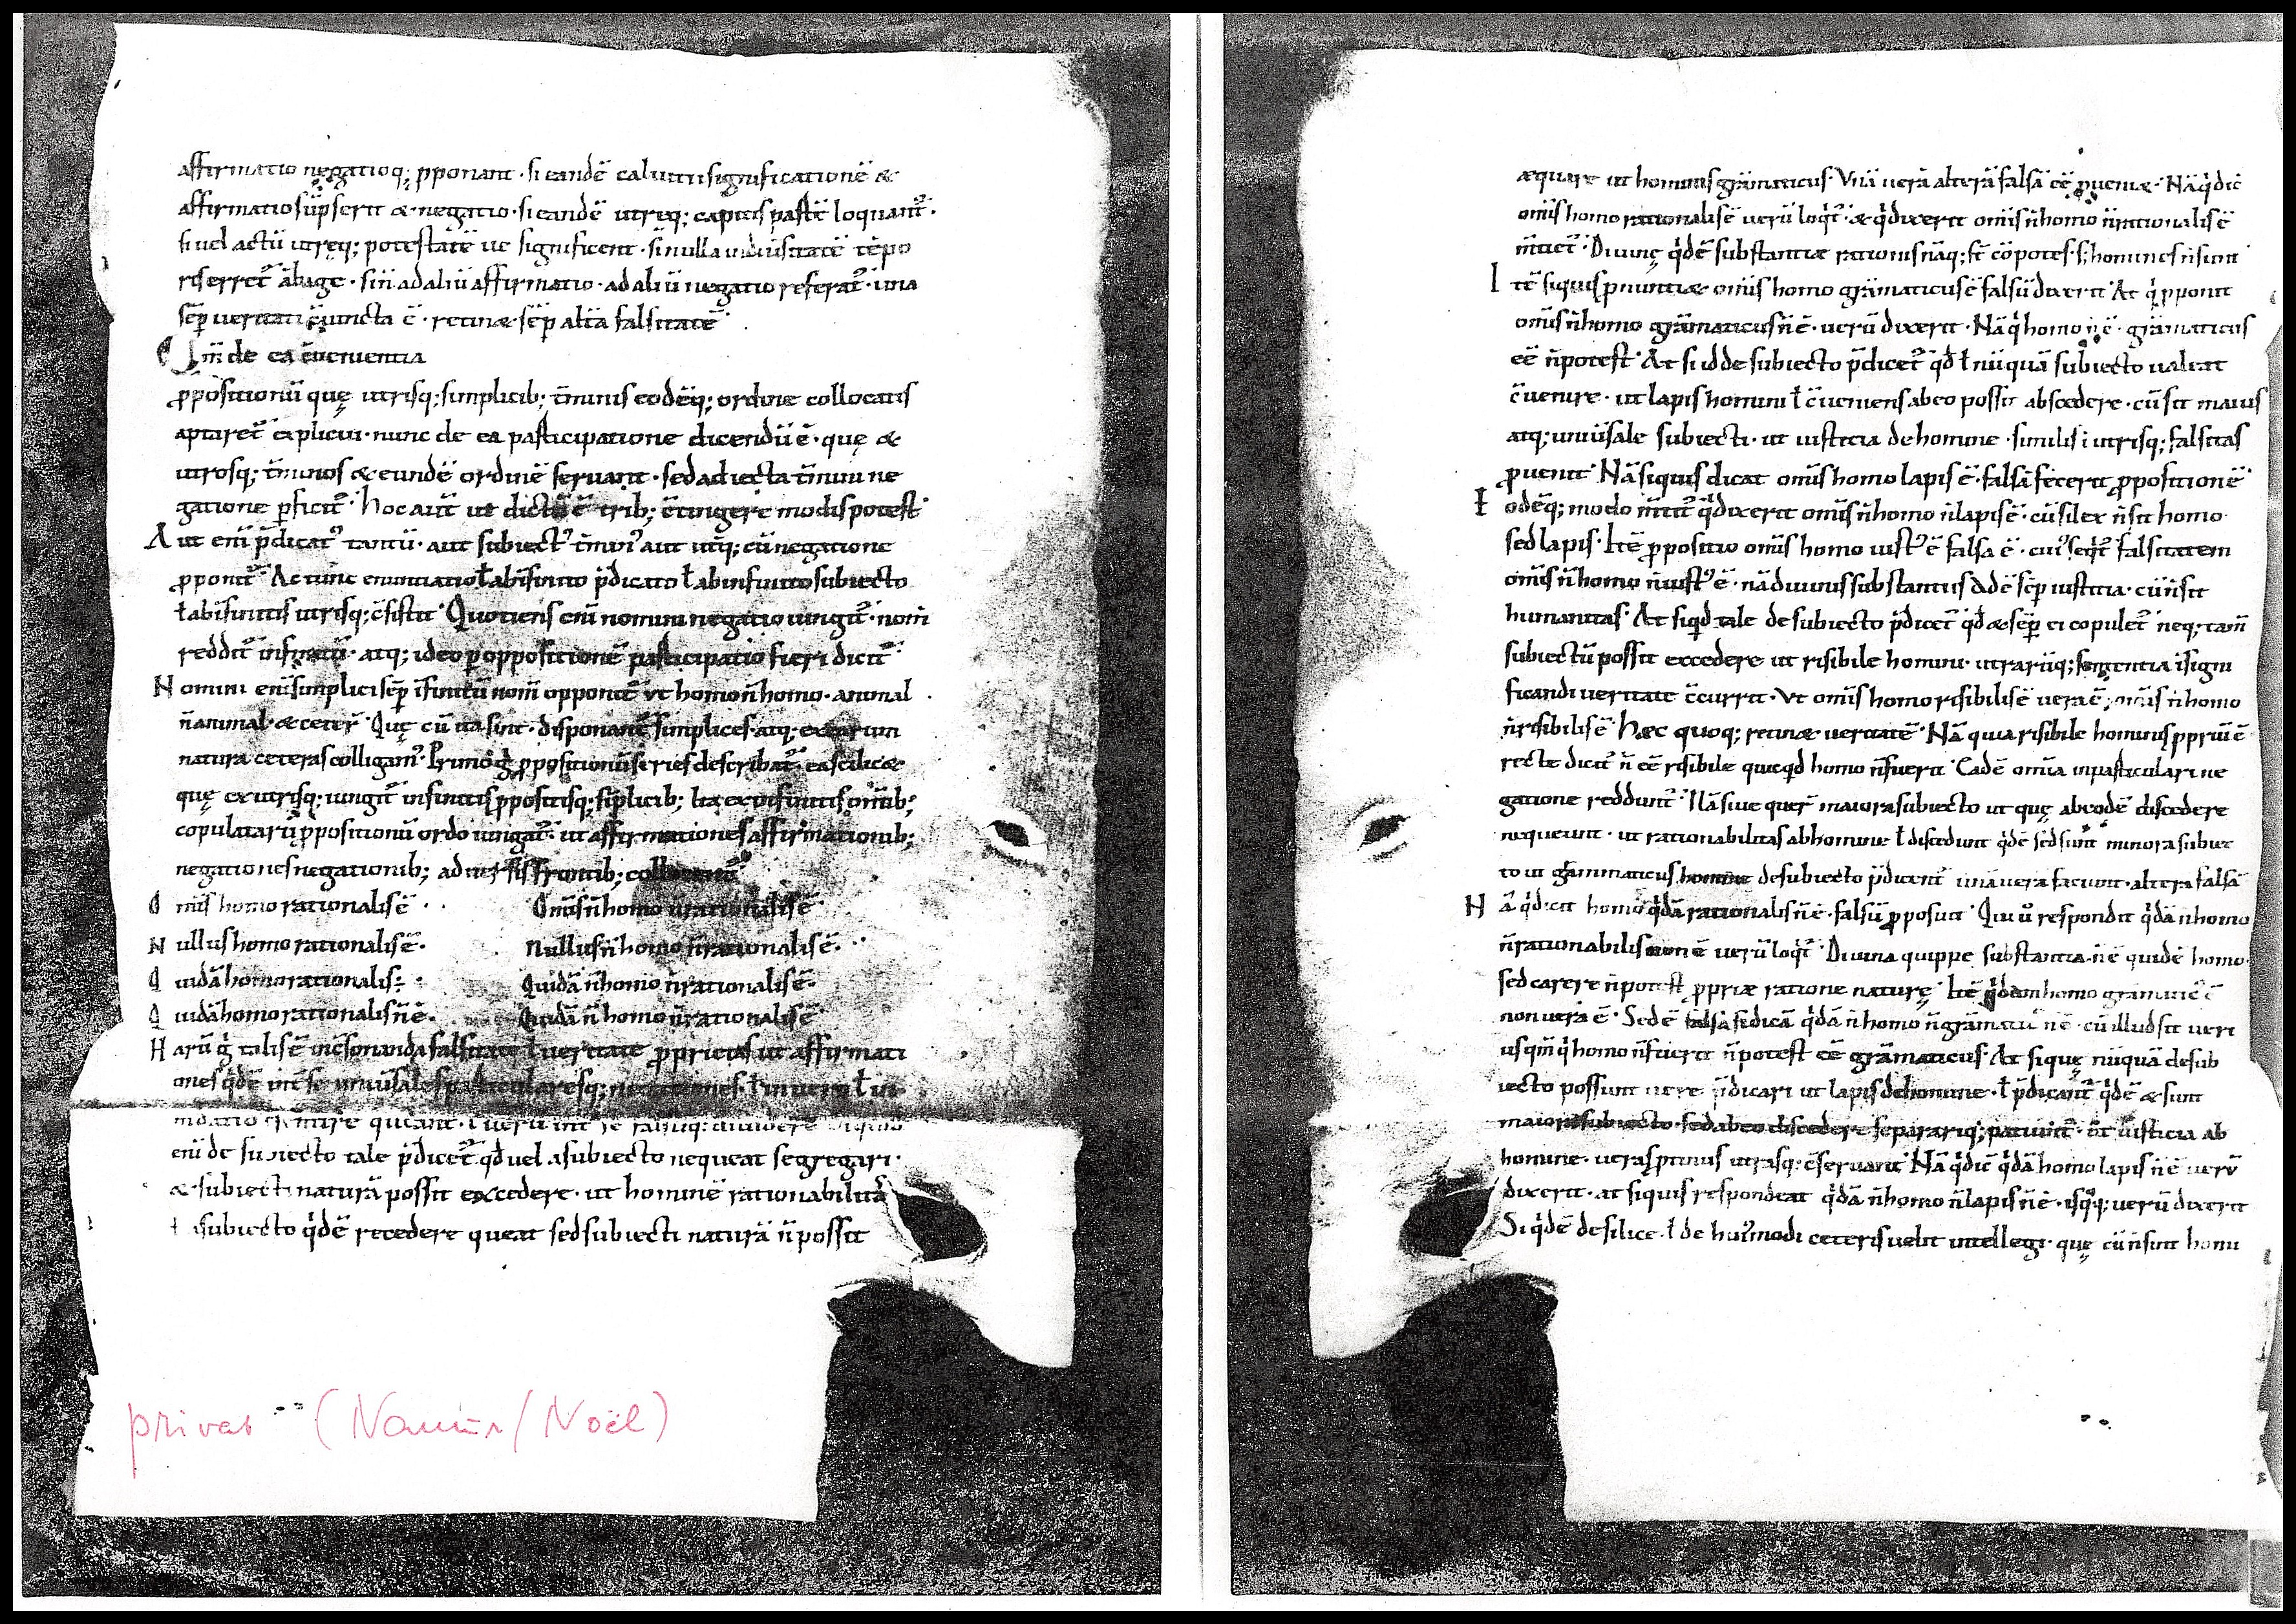 affirmatio negatioq; ꝓponant · si eandē cal uttri significationē &
affirmatio sūpserit & negatio · si eandē utreq; capitis partē loquant̄ ·
si vel actū utręq; potestatē ve significent · si nulla tēpo
riserret̄ ābage · si n̄ ad aliū affirmatio · ad aliū negatio referat̄ · una
sēp veritati iuncta ē · retin& sēp alt̄a falsitatē
Qm̄ de ea c̄venientia
ꝓpositionū quę utrisq; simplicib; t̄minis eodēq; ordine collocatis
aptaret̄ explicui · nunc de ea participatione dicendū ē · quę &
utrosq; t̄minos & eundē ordinē servant · sed adiecta t̄mini ne
gatione ꝑficit̄ Hoc aut̄ ut dictū ē trib; c̄tingere modis potest
Aut eni p̄dicat᾿ tantū · aut subiect᾿ t̄min᾿ aut utq; cū negatione
ꝓponit̄ Ac tunc enuntiatio ł ab īfinito p̄dicato ł ab infinito subiecto
ł ab īfinitis utrisq; c̄sistit Quotiens eni nomini negatio iungit̄ · nom̄
reddit̄ infinitū · atq; ideo ꝑ oppositionē participatio fieri dicit̄
Nomini eni simplici sēp īfinitū nom̄ opponit̄ ut homo n̄ homo · animal
n̄ animal · & ceter̄ Quę cū ita sint · disponant̄ simplices · atq; ex earum
natura ceteras colligam᾿ Primo g̊ ꝓpositionū series describat̄ · ea scilic&
quę ex utrisq; iungit̄ infinitis ꝓpositisq; siplicib; hæ ex infinitis omīb;
copulatarū ꝓpositionū ordo iungat̄ · ut affirmationes affirmationib;
negationes negationib; frontib;
Omīs homo rationalis ē · Omīs n̄ homo n̄ rationalis ē
Nullus homo rationalis ē · Nullus n̄ homo n̄ rationalis ē ·
Quidā homo rationalis ÷ Quidā n̄ homo n̄ rationalis ē ·
Quidā homo rationalis n̄ ē · Quidā n̄ homo n̄ rationalis ē
Harū g̊ talis ē in c̄sonanda falsitate ł veritate ꝓprietas ut affirmati
ones q̇dē int̄ se univ̄sales particularesq; negationes · ł in vero ł in
queant · ł verū int̄ se falsūq; dividere
enī de subiecto tale p̄dicet̄ qd̄ vel a subiecto nequeat segregari ·
& subiecti naturā possit excedere · ut hominē rationabilitā
ł a subiecto q̇dē recedere queat sed subiecti naturā n̄ possit
æquare ut hominis grāmaticus Unā verā alterā falsā cē ꝓveni& Nā q̇ dic̄
omīs homo rationalis ē verū loq̇t̄ & q̇ dixerit omīs n̄ homo n̄ rationalis ē
m̄tiet̄ Divinę q̇dē substantiæ rationis nāq; st̄ cōpotes · s; homines n̄ sunt
Itē siquis pnuntiæ omīs homo grāmaticus ē falsū dixerit At q̇ ꝓponit
omīs n̄ homo grāmaticus n̄ ē · verū dixerit · Nā q̇ homo n̄ ē · grāmaticus
cē n̄ potest At si id de subiecto p̄dicet̄ qd̄ ł nūquā subiecto valeat
c̄venire · ut lapis homini ł c̄veniens ab eo possit abscedere · cū sit maius
atq; univ̄sale subiecti · ut iusticia de homine · similis i utrisq; falsitas
ꝓvenit Nā siquis dicat omīs homo lapis ē · falsā fecerit ꝓpositionē
Eodēq; modo m̄tit̄ q̇ dixerit omīs n̄ homo n̄ lapis ē · cū silex n̄ sit homo
sed lapis · Itē ꝓpositio omīs homo iust᾿ ē falsa ē · cui᾿ seq̇t̄ falsitatem
omīs n̄ homo n̄ iust᾿ ē · nā divinis substantiis adē sēp iustitia · cū n̄ sit
humanitas At siqd tale de subiecto p̄dicet̄ qd̄ & sēp ei copulet̄ neq; tam̄
subiectū possit excedere ut risibile homini · utrarūq; sententia ī signi
ficandi veritate c̄currit · Ut omīs homo risibilis ē vera ē; omīs n̄ homo
n̄ risibilis ē Hæc quoq; retin& veritatē Nā quia risibile hominis ꝓpriū ē
recte dicit̄ n̄ cē risibile quicqd homo n̄ fuerit Eadē omīa in particulari ne
gatione reddunt̄ Nā sive quer̄ maiora subiecto ut quę ab eodē discedere
nequeunt · ut rationabilitas ab homine ł discedunt q̇dē sed sunt minora subiec
to ut grāmmaticus homine de subiecto p̄dicent̄ unā vera faciunt · altera falsā
Nā q̇ dicit homo q̇dā rationalis n̄ ē · falsū ꝓposuit Qui v̊ respondit q̇dā n̄ homo
n̄ rationabilis non ē verū loq̇t̄ Divina quippe substantia n̄ ē quidē homo ·
sed carere n̄ potest ꝓpriæ ratione naturę Itē q̇dam homo gramatic᾿ ē
non vera ē · Sed ē falsa si dicā q̇dā n̄ homo n̄ grāmatic᾿ n̄ ē · cū illud sit veri
us qm̄ q̇ homo n̄ fuerit n̄ potest cē grāmaticus At si quę nūquā de sub
iecto possunt vere p̄dicari ut lapis de homine · ł p̄dicant̄ q̇dē & sunt
maiora subiecto · sed ab eo discedere separariq; patiunt̄ · ut iusticia ab
homine · veras ptinus utrasq; c̄servant Nā q̇ dic̄ q̇dā homo lapis n̄ ē verū
dixerit · at siquis respondeat q̇dā n̄ homo n̄ lapis n̄ ē · isq̇q; verū dixerit
Si q̇dē de silice · ł de hui᾿modi ceteris velit intellegi · quę cū n̄ sint homi
privat (Namur/Noël)